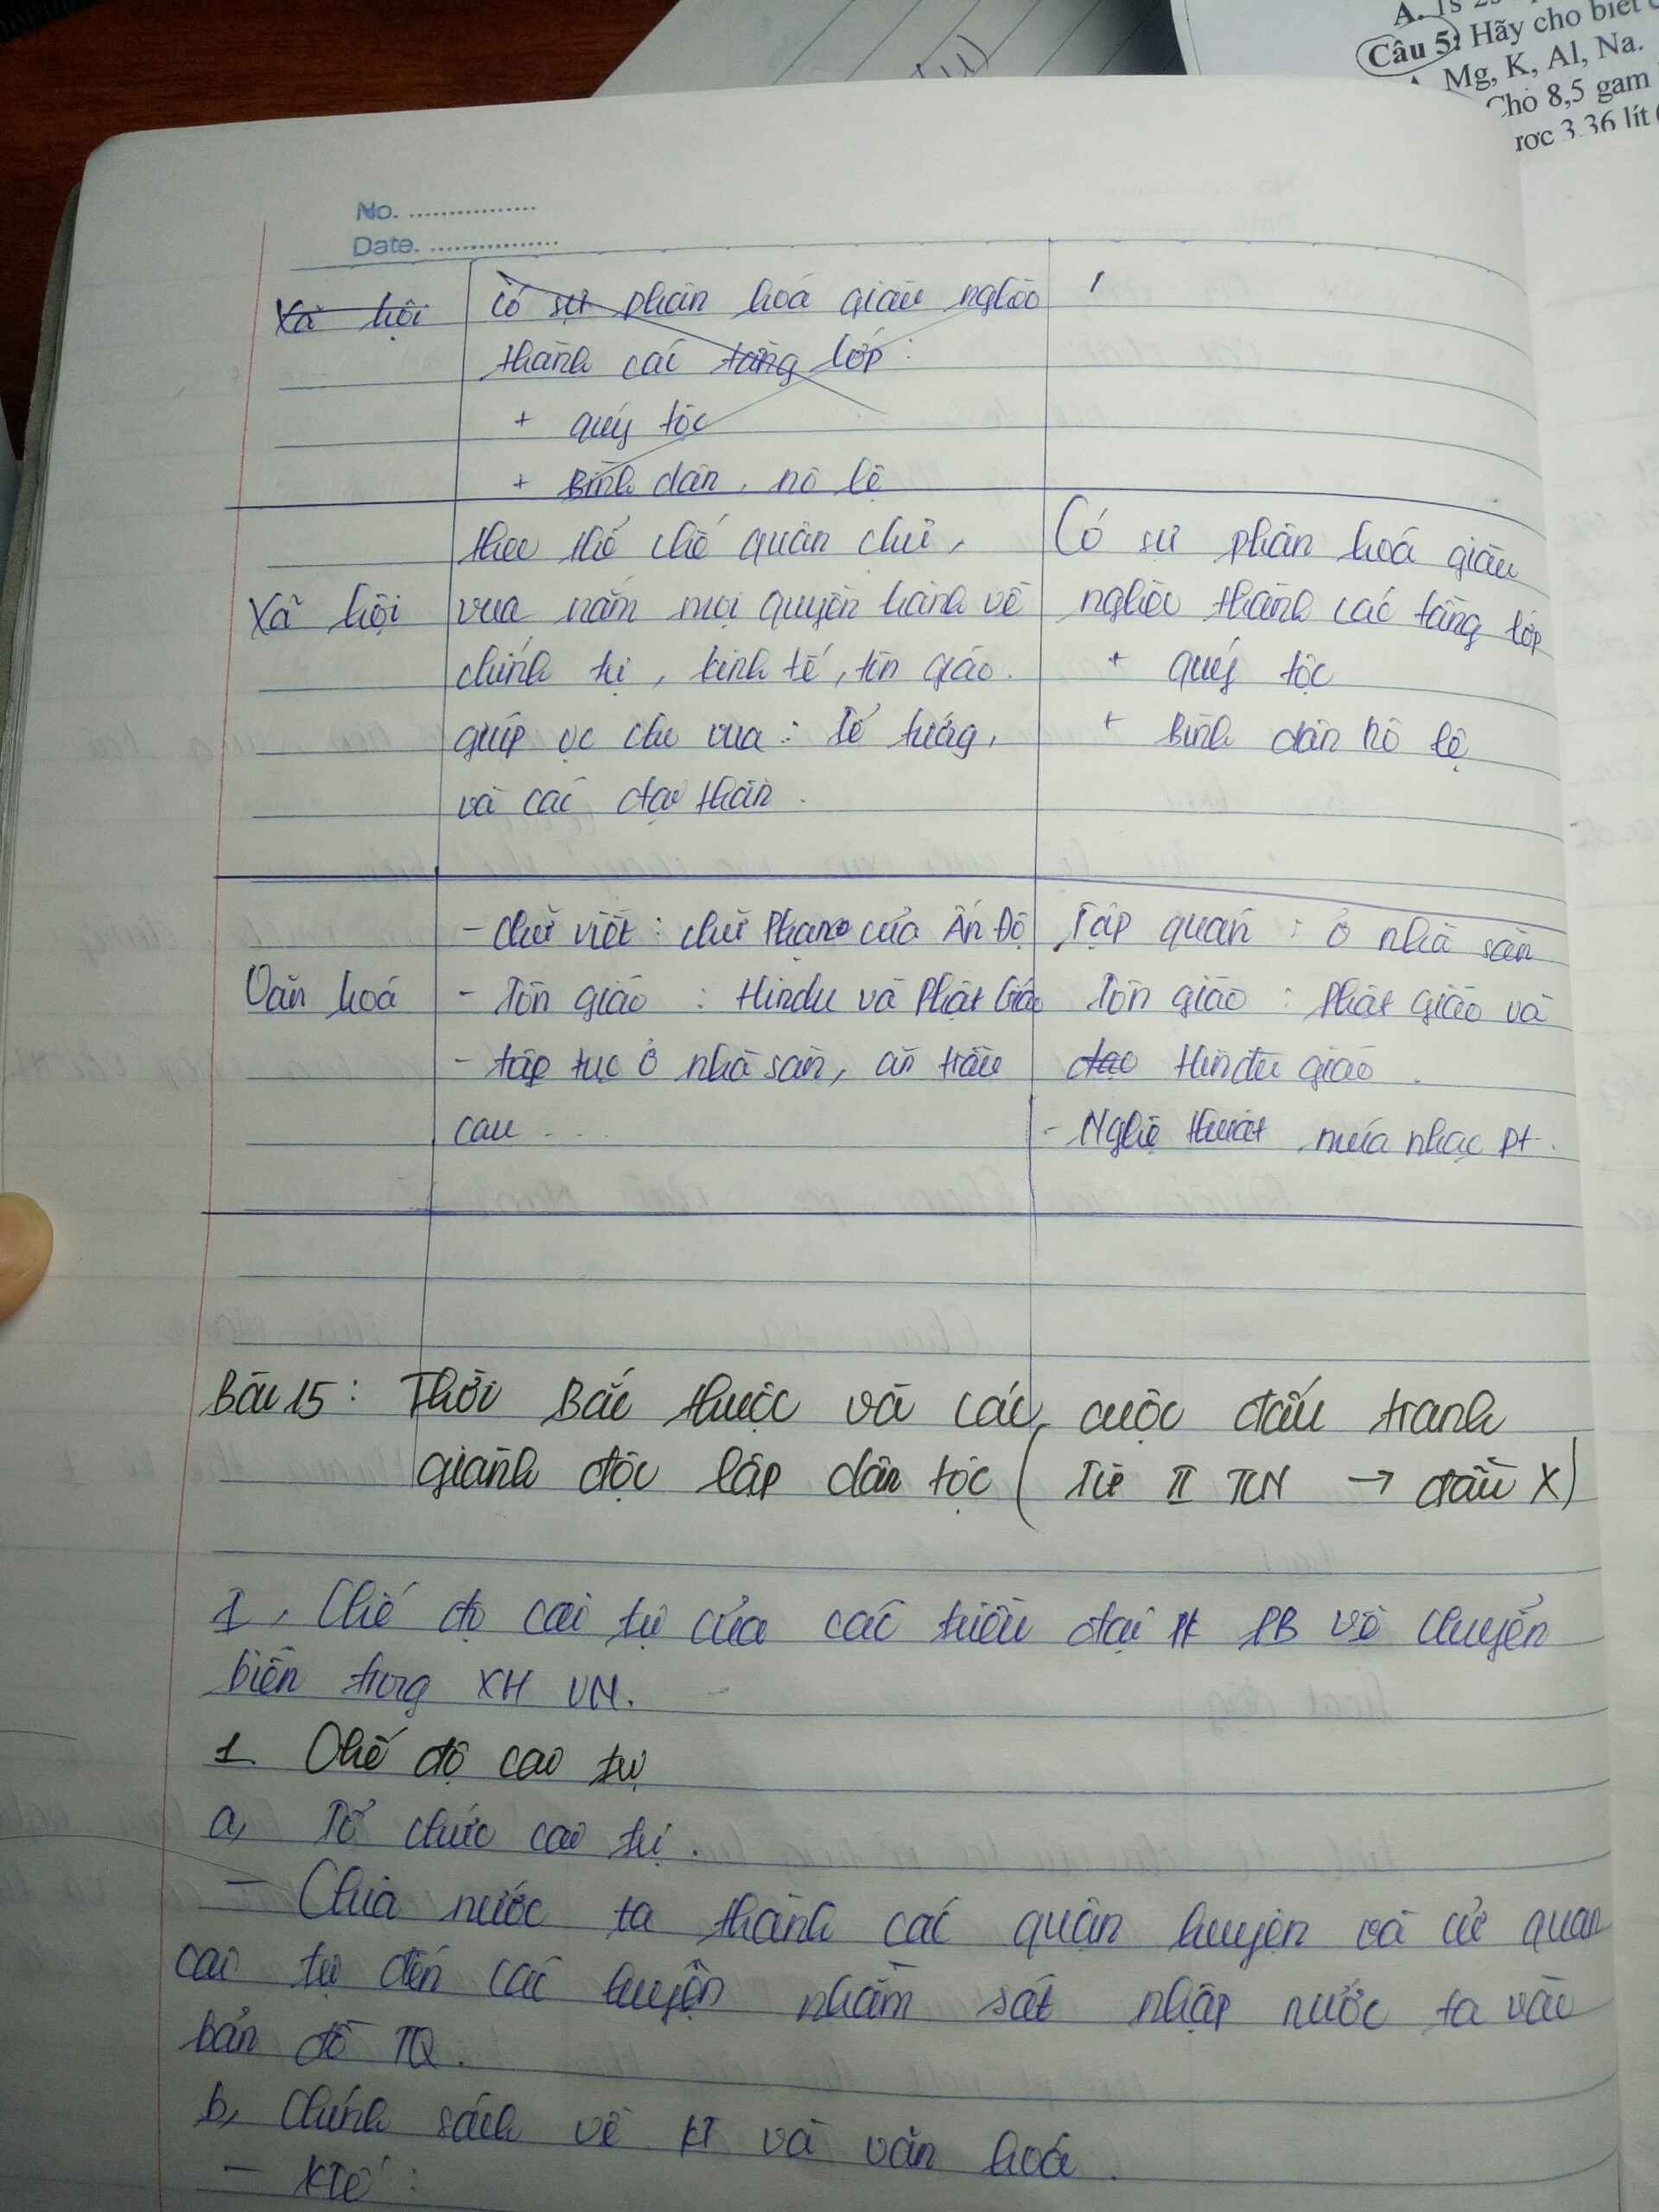 A. 1s
Câu 5: Hãy cho biết
Mg, K, Al, Na.
Cho 8,5 gam
3,36 lít
No.
Date.
Xã hội
Có sự phân hoá giàu nghèo
thành các tầng lớp :
+ quý tộc
+ Bình dân, nô lệ
Xã hội
theo thể chế quân chủ,
vua nắm mọi quyền hành về
chính trị, kinh tế, tôn giáo.
giúp vc cho vua : Tể tướng,
và các đại thần.
Có sự phân hoá giàu
nghèo thành các tầng lớp
+ quý tộc
+ Bình dân nô lệ
Văn hoá
- Chữ viết : chữ Phạn của Ấn Độ
- Tôn giáo : Hindu và Phật Giáo
- tập tục ở nhà sàn, ăn trầu
cau ...
Tập quán : ở nhà sàn
Tôn giáo : Phật giáo và
đạo Hinđu giáo.
- Nghệ thuật múa nhạc pt.
Bài 15 : Thời Bắc thuộc và các cuộc đấu tranh
giành độc lập dân tộc ( Từ II TCN → đầu X)
I, Chế độ cai trị của các triều đại pk PB về chuyển
biến trong XH VN.
1. Chế độ cai trị
a, Tổ chức cai trị.
- Chia nước ta thành các quận huyện và cử quan
cai trị đến các huyện nhằm sát nhập nước ta vào
bản đồ TQ.
b, Chính sách về KT và văn hoá.
- Ktế :